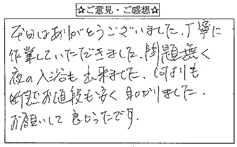 ☆ご意見・ご感想☆
本日はありがとうございました。丁寧に
作業していただきました。問題無く
夜の入浴も出来ました。何よりも
お値段も安く助かりました。
お願いして良かったです。